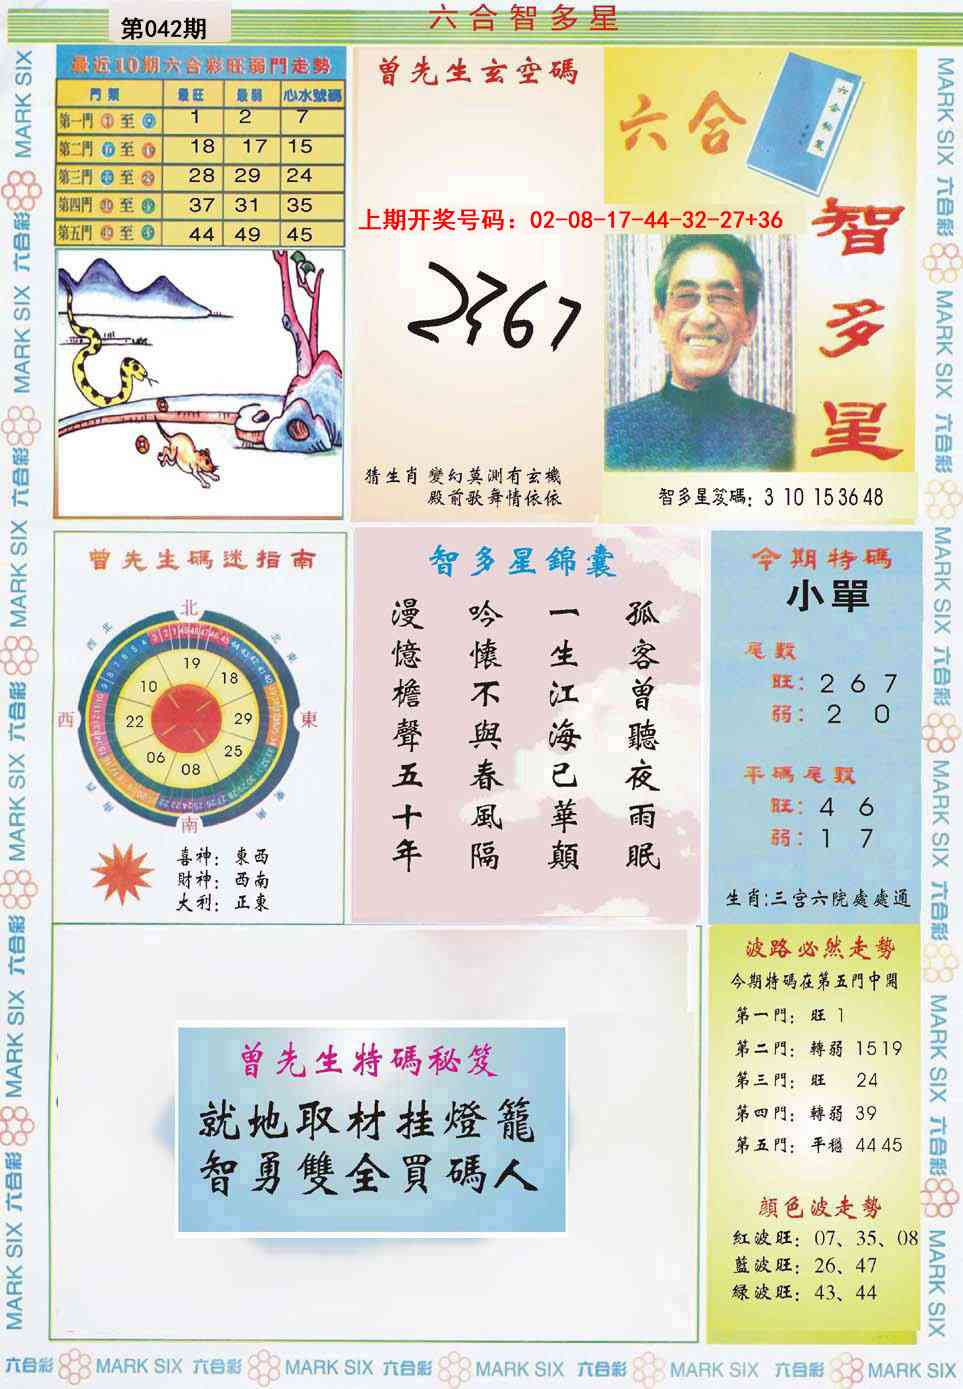 第042期
六合智多星
最近10期六合彩旺弱門走勢
門類 最旺 最弱 心水號碼
第一門 至 1 2 7
第二門 至 18 17 15
第三門 至 28 29 24
第四門 至 37 31 35
第五門 至 44 49 45
曾先生玄空碼
上期开奖号码：02-08-17-44-32-27+36
2367
猜生肖 變幻莫測有玄機
殿前歌舞情依依
六合
智多星
智多星笈碼：3 10 15 36 48
曾先生碼迷指南
北
西北
東北
西
東
西南
東南
南
19
18
29
25
08
06
22
10
喜神：東西
財神：西南
大利：正東
智多星錦囊
孤客曾聽夜雨眠
一生江海已華顛
吟懷不與春風隔
漫憶檐聲五十年
今期特碼
小單
尾數
旺：2 6 7
弱：2 0
平碼尾數
旺：4 6
弱：1 7
生肖:三宫六院處處通
曾先生特碼秘笈
就地取材挂燈籠
智勇雙全買碼人
波路必然走勢
今期特碼在第五門中開
第一門：旺 1
第二門：轉弱 15 19
第三門：旺 24
第四門：轉弱 39
第五門：平穩 44 45
顔色波走勢
紅波旺：07、35、08
藍波旺：26、47
緑波旺：43、44
MARK SIX 六合彩